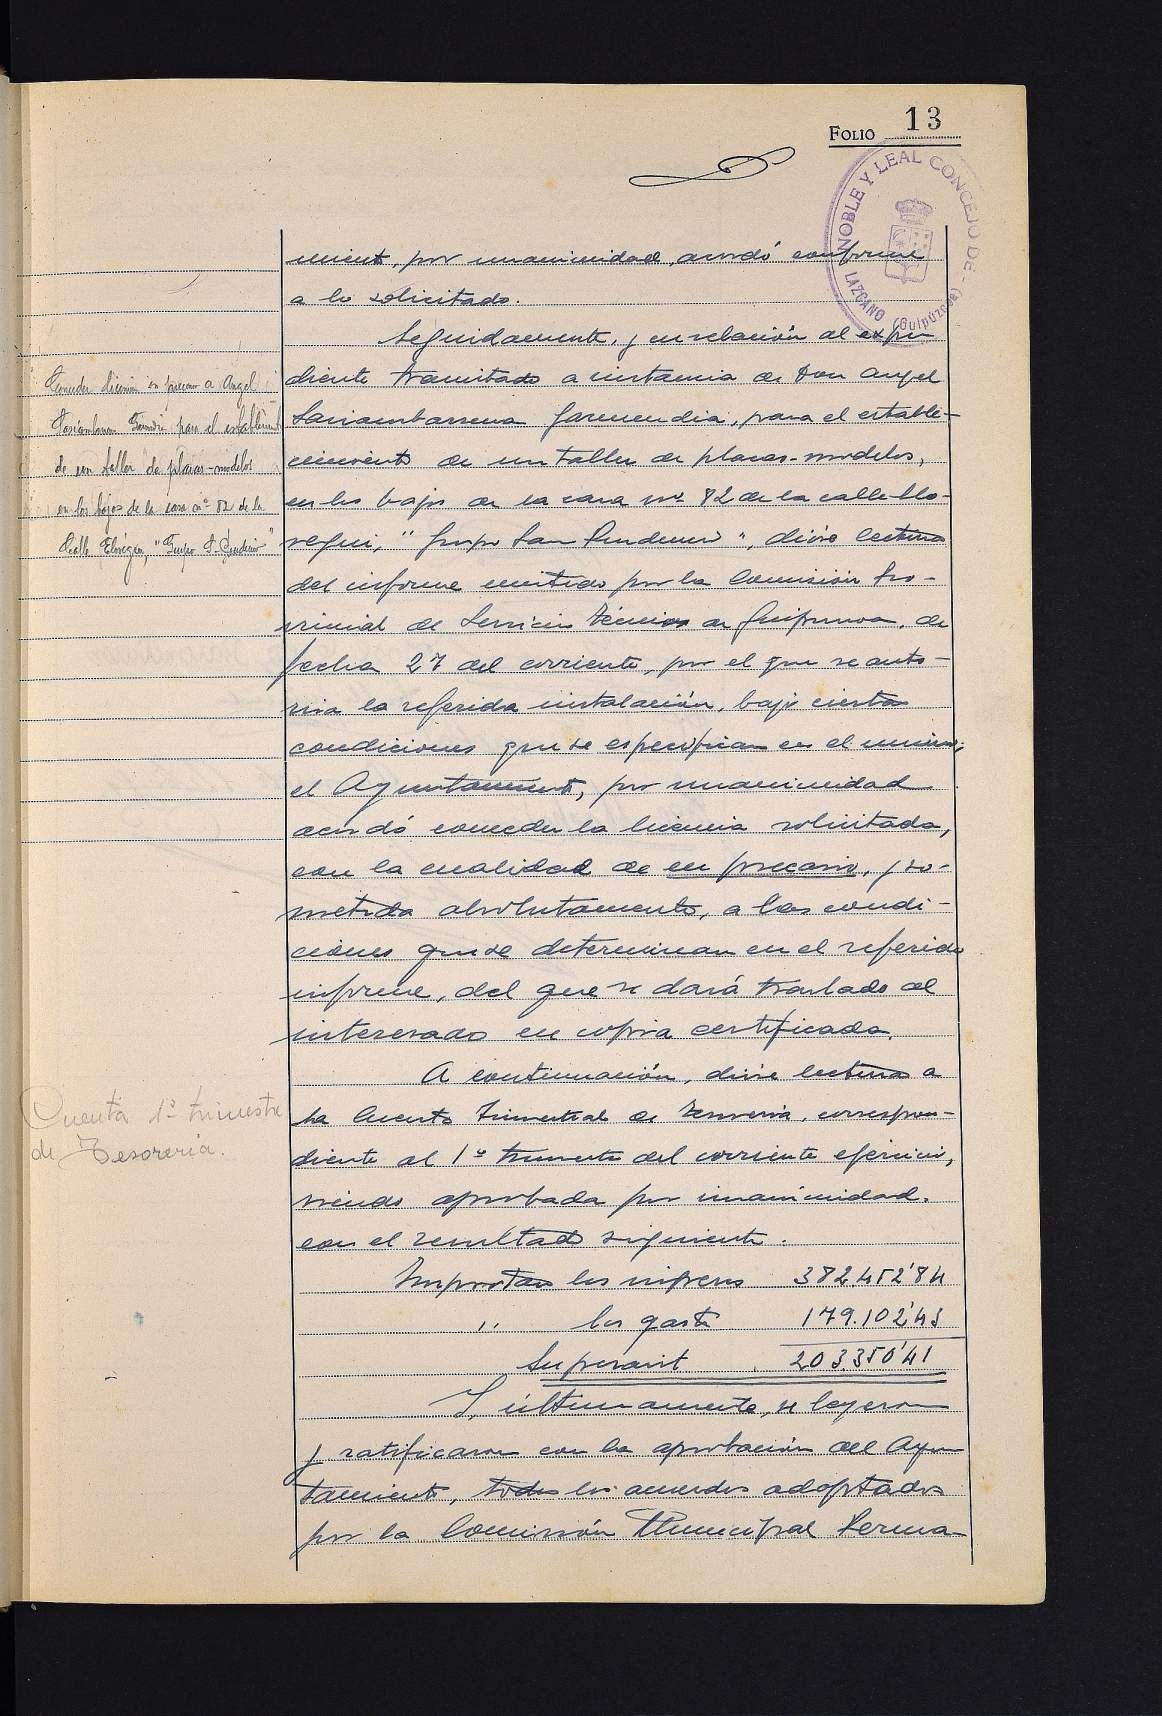 FOLIO 13
NOBLE Y LEAL CONCEJO DE - LAZCANO (Guipúzcoa)
miento, por unanimidad, acordó conforme
a lo solicitado.
Seguidamente, y en relación al expe-
diente tramitado a instancia de Don Angel
Garmendia, para el estable-
cimiento de un taller de placas-modelos,
en los bajos de la casa nº 82 de la calle Elo-
segui, "Grupo San Prudencio", dióse lectura
del informe emitido por la Comisión Pro-
vincial de Servicios Técnicos de Guipúzcoa, de
fecha 27 del corriente, por el que se auto-
riza la referida instalación, bajo ciertas
condiciones que se especifican en el mismo;
el Ayuntamiento, por unanimidad
acordó conceder la licencia solicitada,
con la cualidad de en precario, y so-
metida absolutamente, a las condi-
ciones que se determinan en el referido
informe, del que se dará traslado al
interesado en copia certificada.
A continuación, dióse lectura a
la Cuenta trimestral de Tesorería, correspon-
diente al 1º trimestre del corriente ejercicio,
siendo aprobada por unanimidad.
con el resultado siguiente.
Importan los ingresos 382.452'84
" los gastos 179.102'43
Superavit 203.350'41
Y, últimamente, se leyeron
y ratificaron con la aprobación del Ayun-
tamiento, todos los acuerdos adoptados
por la Comisión Municipal Perma-
Conceder licencia en precario a Angel
para el establecimiento
de un taller de placas-modelos
en los bajos de la casa nº 82 de la
Calle Elosegui, "Grupo S. Prudencio"
Cuenta 1º trimestre
de Tesorería.